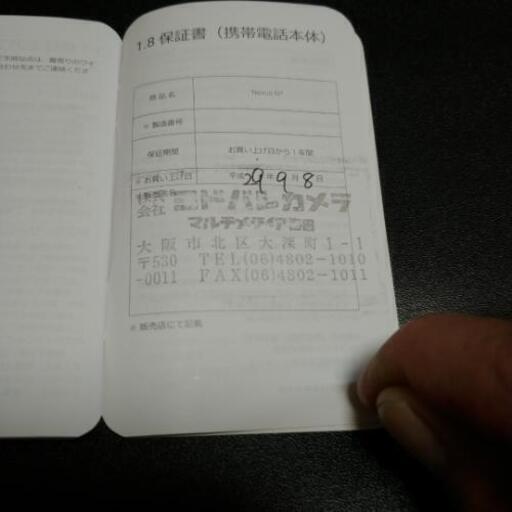 1.8 保証書（携帯電話本体）
商品名 Nexus 6P
※ 製造番号
保証期間 お買い上げ日から1年間
※ お買い上げ日 平成 29 年 9 月 8 日
株式会社 ヨドバシカメラ
マルチメディア梅田
大阪市北区大深町1-1
〒530 TEL(06)4802-1010
-0011 FAX(06)4802-1011
※ 販売店にて記載